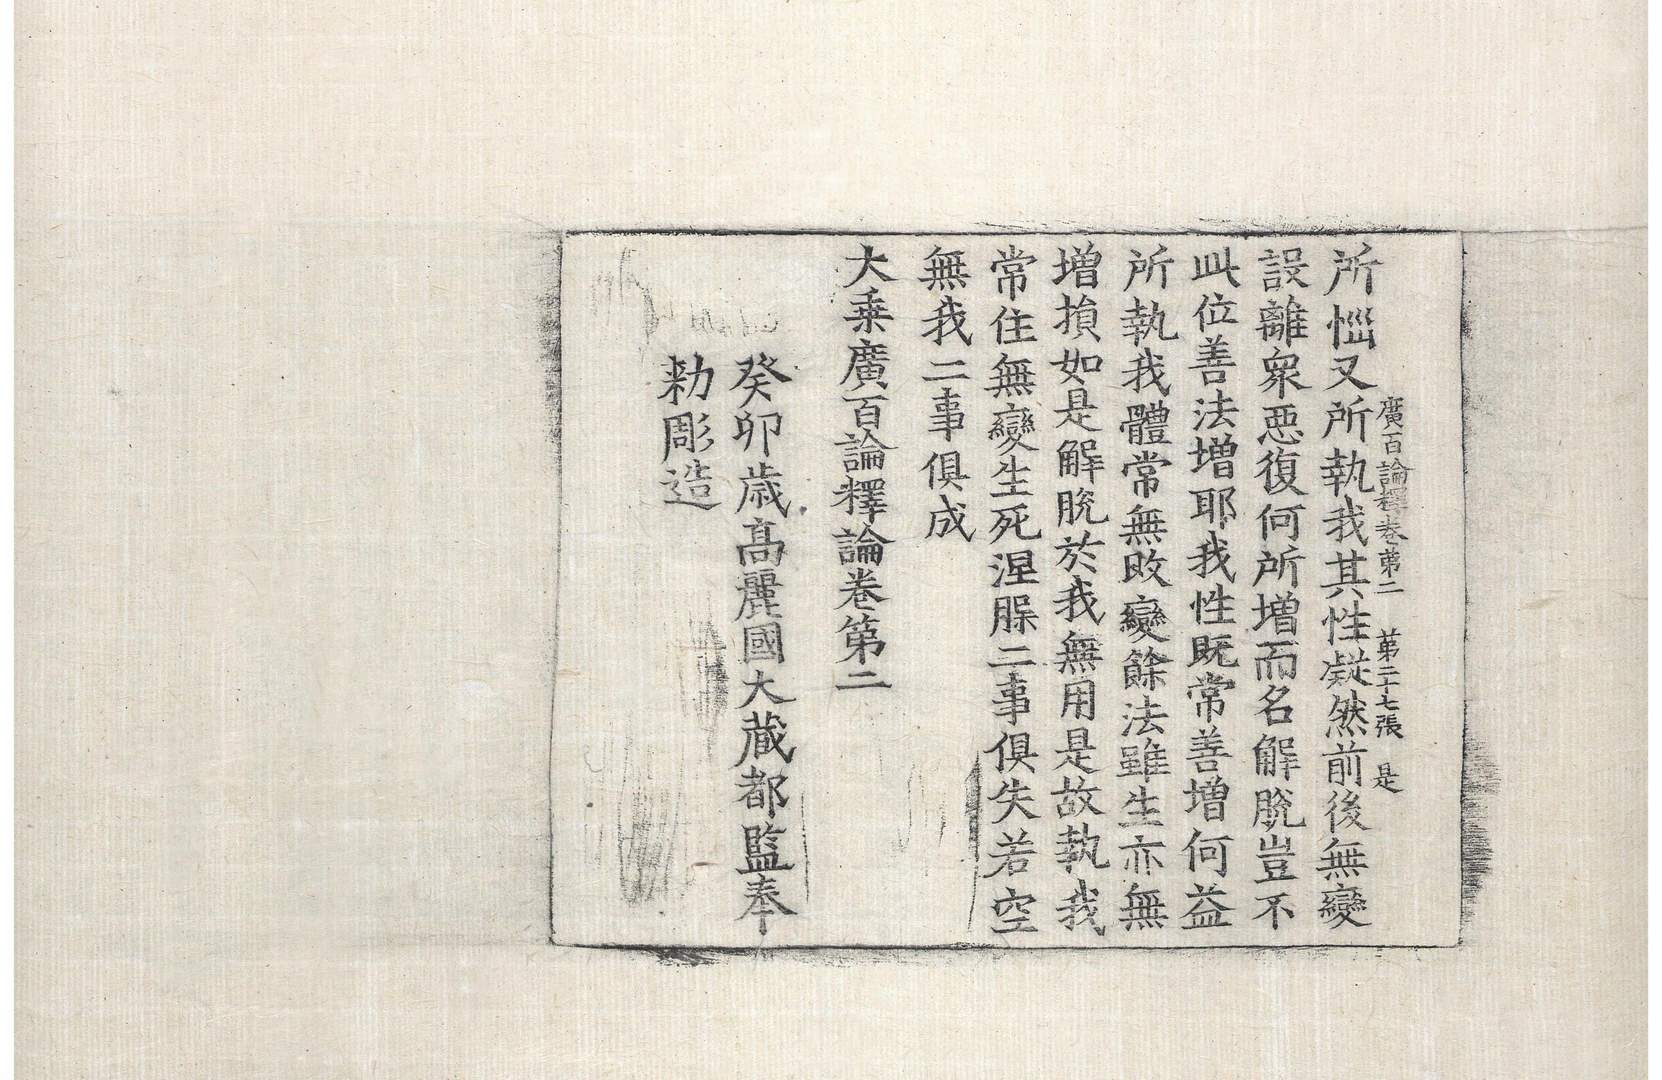 廣百論釋卷第二 第二十七張 是
所惱又所執我其性凝然前後無變
設離衆惡復何所增而名解脫豈不
此位善法增耶我性旣常善增何益
所執我體常無敗變餘法雖生亦無
增損如是解脫於我無用是故執我
常住無變生死涅槃二事俱失若空
無我二事俱成
大乘廣百論釋論卷第二
癸卯歲高麗國大藏都監奉
勑彫造